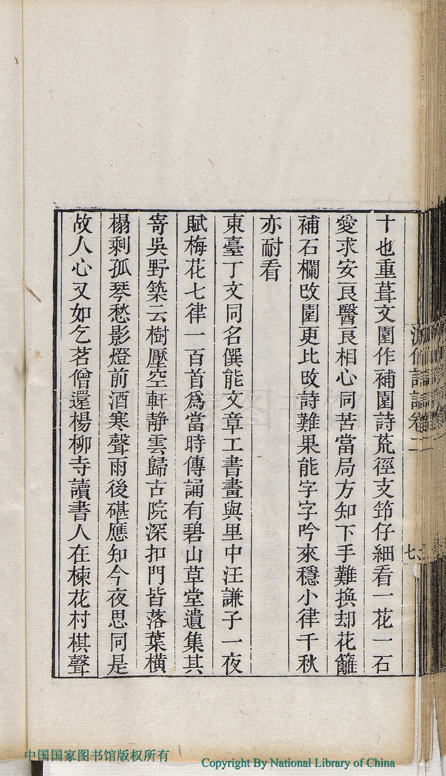 十也重葺文園作補園詩荒徑支筇仔細看一花一石
愛求安良醫良相心同苦當局方知下手難換却花籬
補石欄改園更比改詩難果能字字吟來穩小律千秋
亦耐看
東臺丁文同名僎能文章工書畫與里中汪謙子一夜
賦梅花七律一百首爲當時傳誦有碧山草堂遺集其
寄吳野築云樹壓空軒靜雲歸古院深扣門皆落葉橫
榻剩孤琴愁影燈前酒寒聲雨後碪應知今夜思同是
故人心又如乞茗僧還楊柳寺讀書人在楝花村棋聲
中国国家图书馆版权所有
Copyright By National Library of China